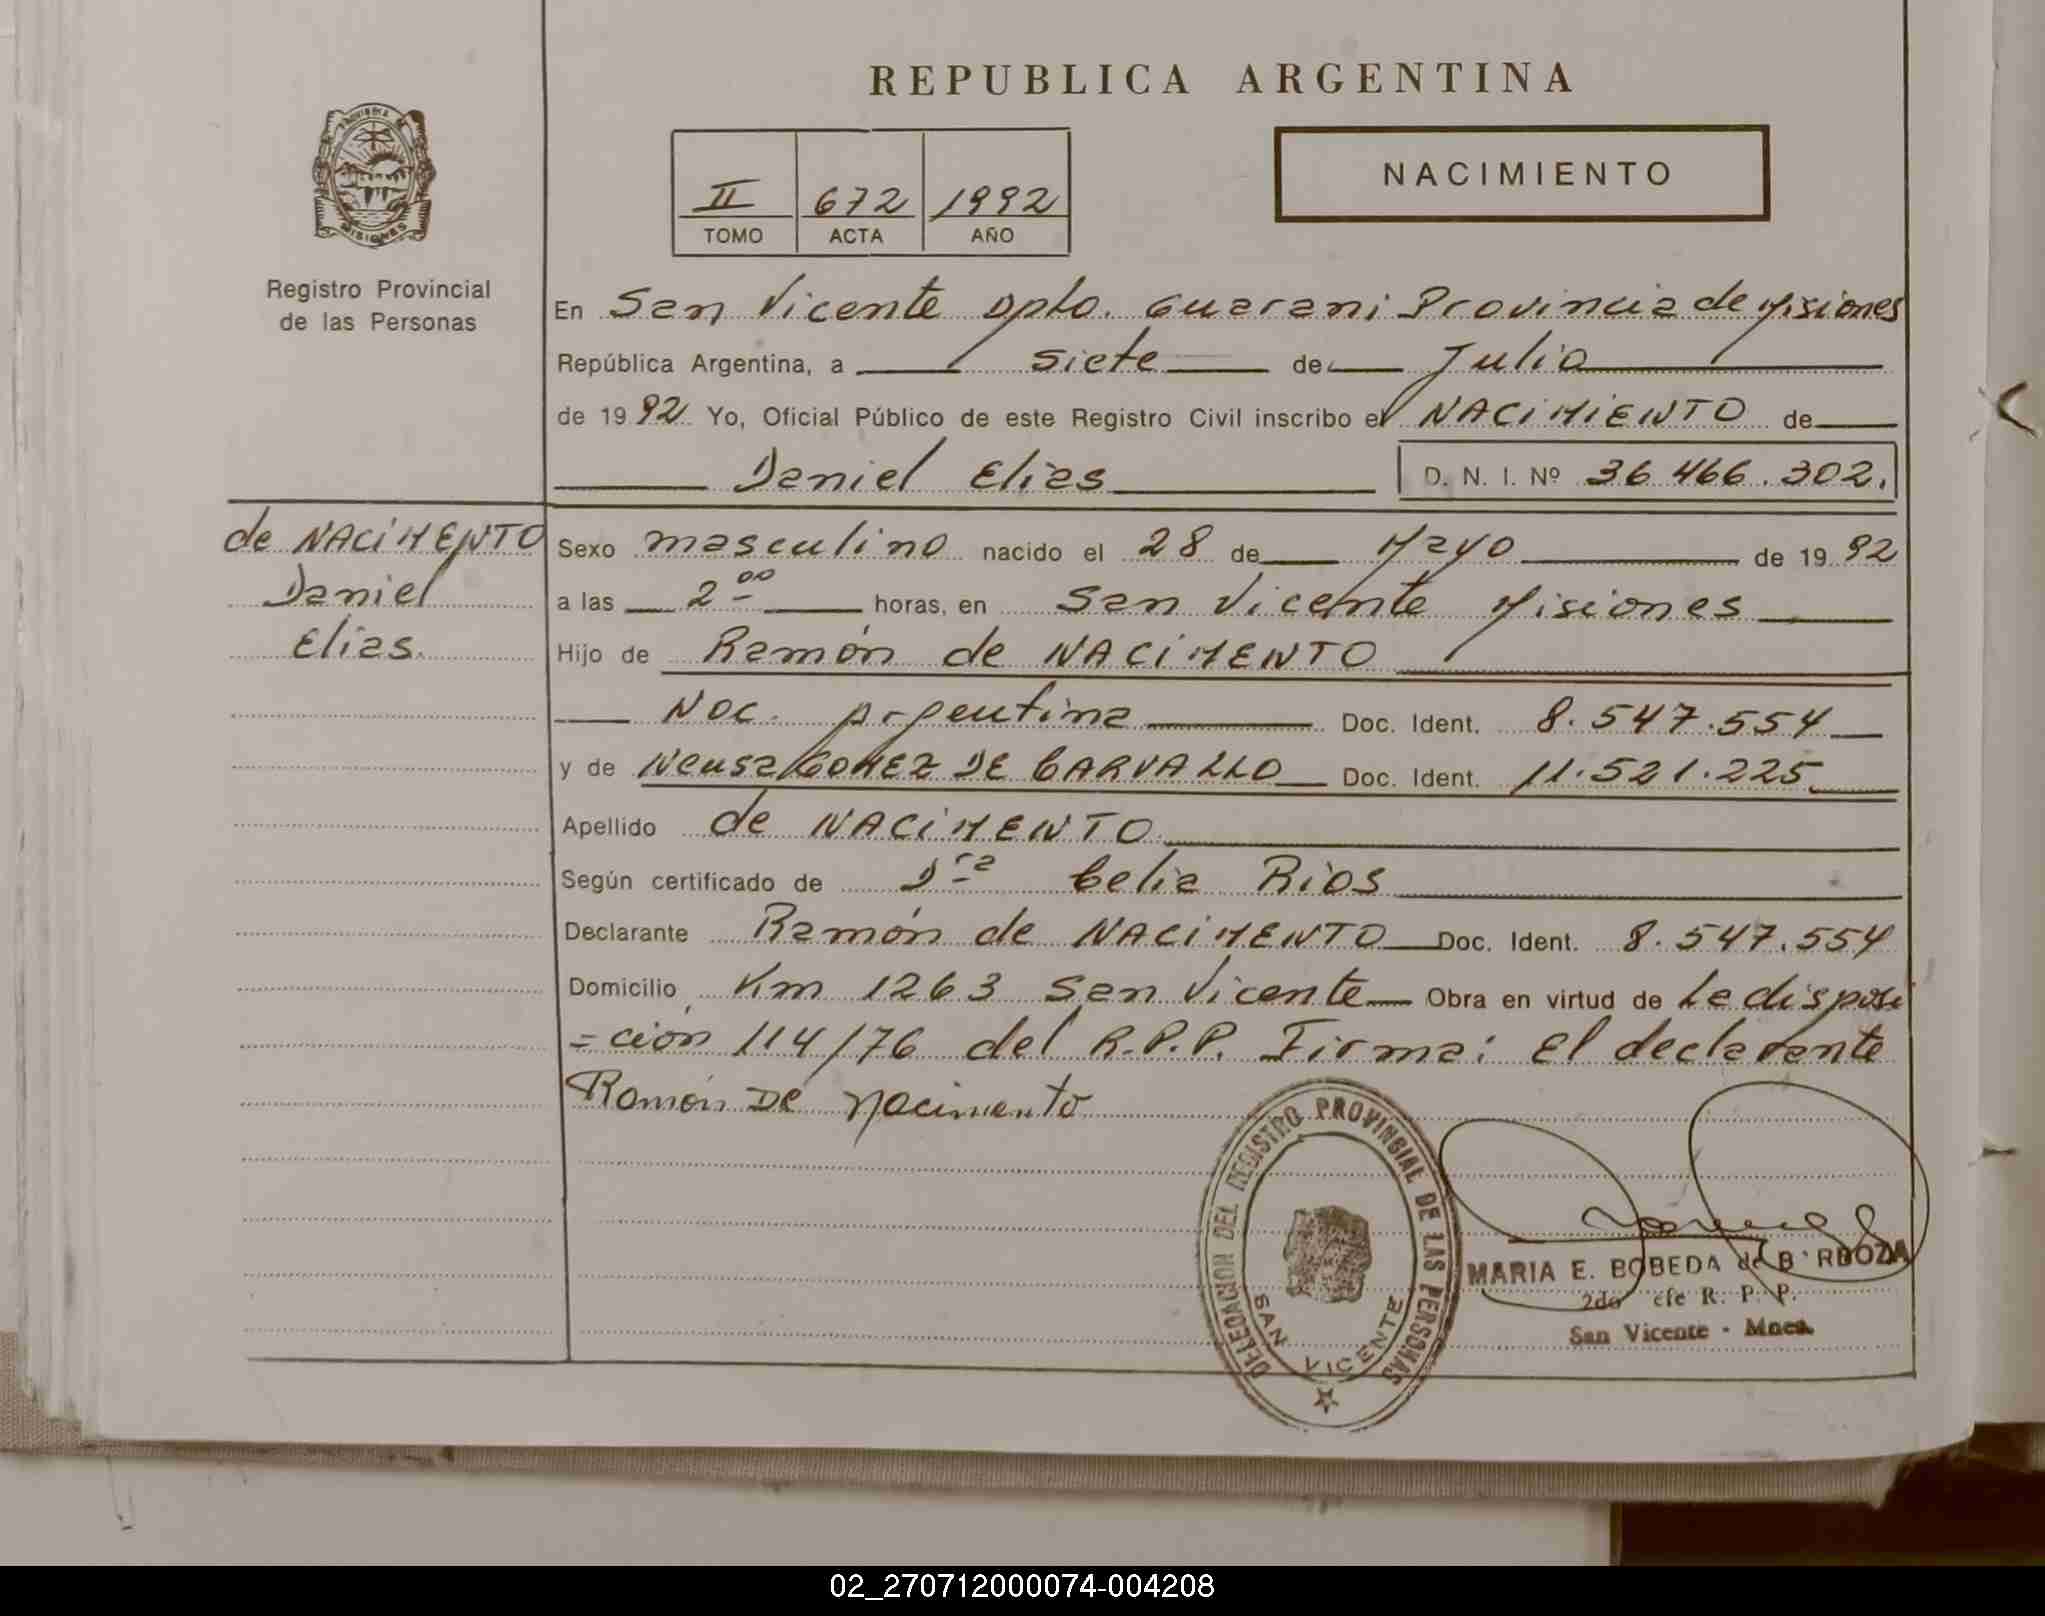 REPUBLICA ARGENTINA
PROVINCIA DE
MISIONES
Registro Provincial
de las Personas
II 672 1992
TOMO ACTA AÑO
NACIMIENTO
En San Vicente Dpto. Guarani Provincia de Misiones
República Argentina, a siete de Julio
de 1992 Yo, Oficial Público de este Registro Civil inscribo el NACIMIENTO de
Daniel Elias D. N. I. Nº 36 466.302.
de NACIMENTO
Daniel
Elias.
Sexo masculino nacido el 28 de Mayo de 1992
a las 2 00 horas, en San Vicente Misiones
Hijo de Ramón de NACIMENTO
Nac. Argentina Doc. Ident. 8.547.554
y de Neusa GOMEZ DE CARVALLO Doc. Ident. 11.521.225
Apellido de NACIMENTO
Según certificado de Dra Celia Rios
Declarante Ramón de NACIMENTO Doc. Ident. 8.547.554
Domicilio Km 1263 San Vicente Obra en virtud de La disposi
=ción 114/76 del R.P.P. Firma: El declarante
Ramón De Nacimento
DELEGACION DEL REGISTRO PROVINCIAL DE LAS PERSONAS
SAN VICENTE
MARIA E. BOBEDA de B RDOZA
2do efe R. P. P.
San Vicente - Mnes.
02_270712000074-004208